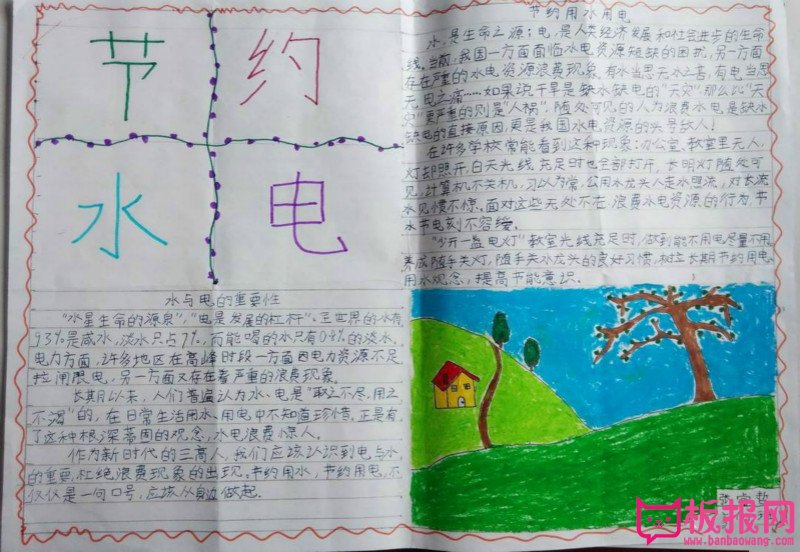 节
约
水
电
水与电的重要性
"水是生命的源泉","电是发展的杠杆"。全世界的水有
93%是咸水,淡水只占7%,而能喝的水只有0.8%的淡水。
电力方面,许多地区在高峰时段一方面因电力资源不足
拉闸限电,另一方面又存在着严重的浪费现象。
长期以来,人们普遍认为水、电是"取之不尽,用之
不渴"的,在日常生活用水、用电中不知道珍惜。正是有
了这种根深蒂固的观念,水电浪费惊人。
作为新时代的三高人,我们应该认识到电与水
的重要,杜绝浪费现象的出现。节约用水,节约用电,不
仅仅是一句口号,应该从身边做起。
节约用水用电
水,是生命之源;电,是人类经济发展和社会进步的生命
线。当前,我国一方面面临水电资源短缺的困扰,另一方面
存在严重的水电资源浪费现象。有水当思无水之苦,有电当思
无电之痛……如果说干旱是缺水缺电的"天灾",那么比"天
灾"更严重的则是"人祸",随处可见的人为浪费水电是缺水
缺电的直接原因,更是我国水电资源的头号敌人!
在许多学校常能看到这种现象:办公室、教室里无人,
灯却照开,白天光线充足时也全部打开,长明灯随处可
见,计算机不关机,习以为常,公用水龙头人走水照流,对长流
水见惯不惊。面对这些无处不在浪费水电资源的行为,节
水节电刻不容缓。
"少开一盏电灯"教室光线充足时,做到能不用电尽量不用
养成随手关灯,随手关水龙头的良好习惯,树立长期节约用电
用水观念,提高节能意识。
板报网
www.banbaowang.com